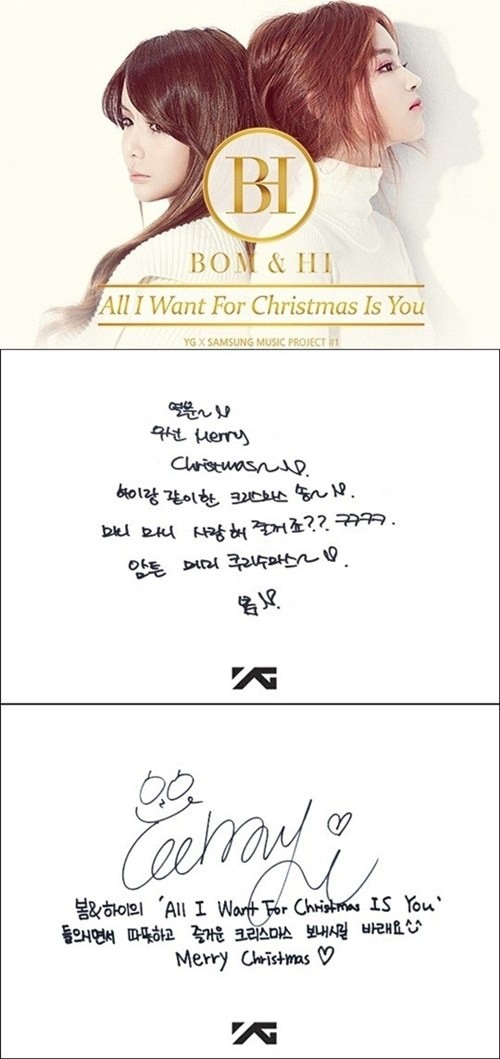 BH
BOM & HI
All I Want For Christmas Is You
YG X SAMSUNG MUSIC PROJECT #1
열분~♡
우선 Merry
Christmas~♡.
하이랑 같이한 크리스마스 송~♡.
마니 마니 사랑해 줄거죠?? ㅋㅋㅋㅋ.
암튼 메리 크리수마스~♡.
봄♡.
YG
Lee Hi ♡
봄&하이의 'All I Want For Christmas IS You'
들으시면서 따뜻하고 즐거운 크리스마스 보내시길 바래요
Merry Christmas ♡
YG